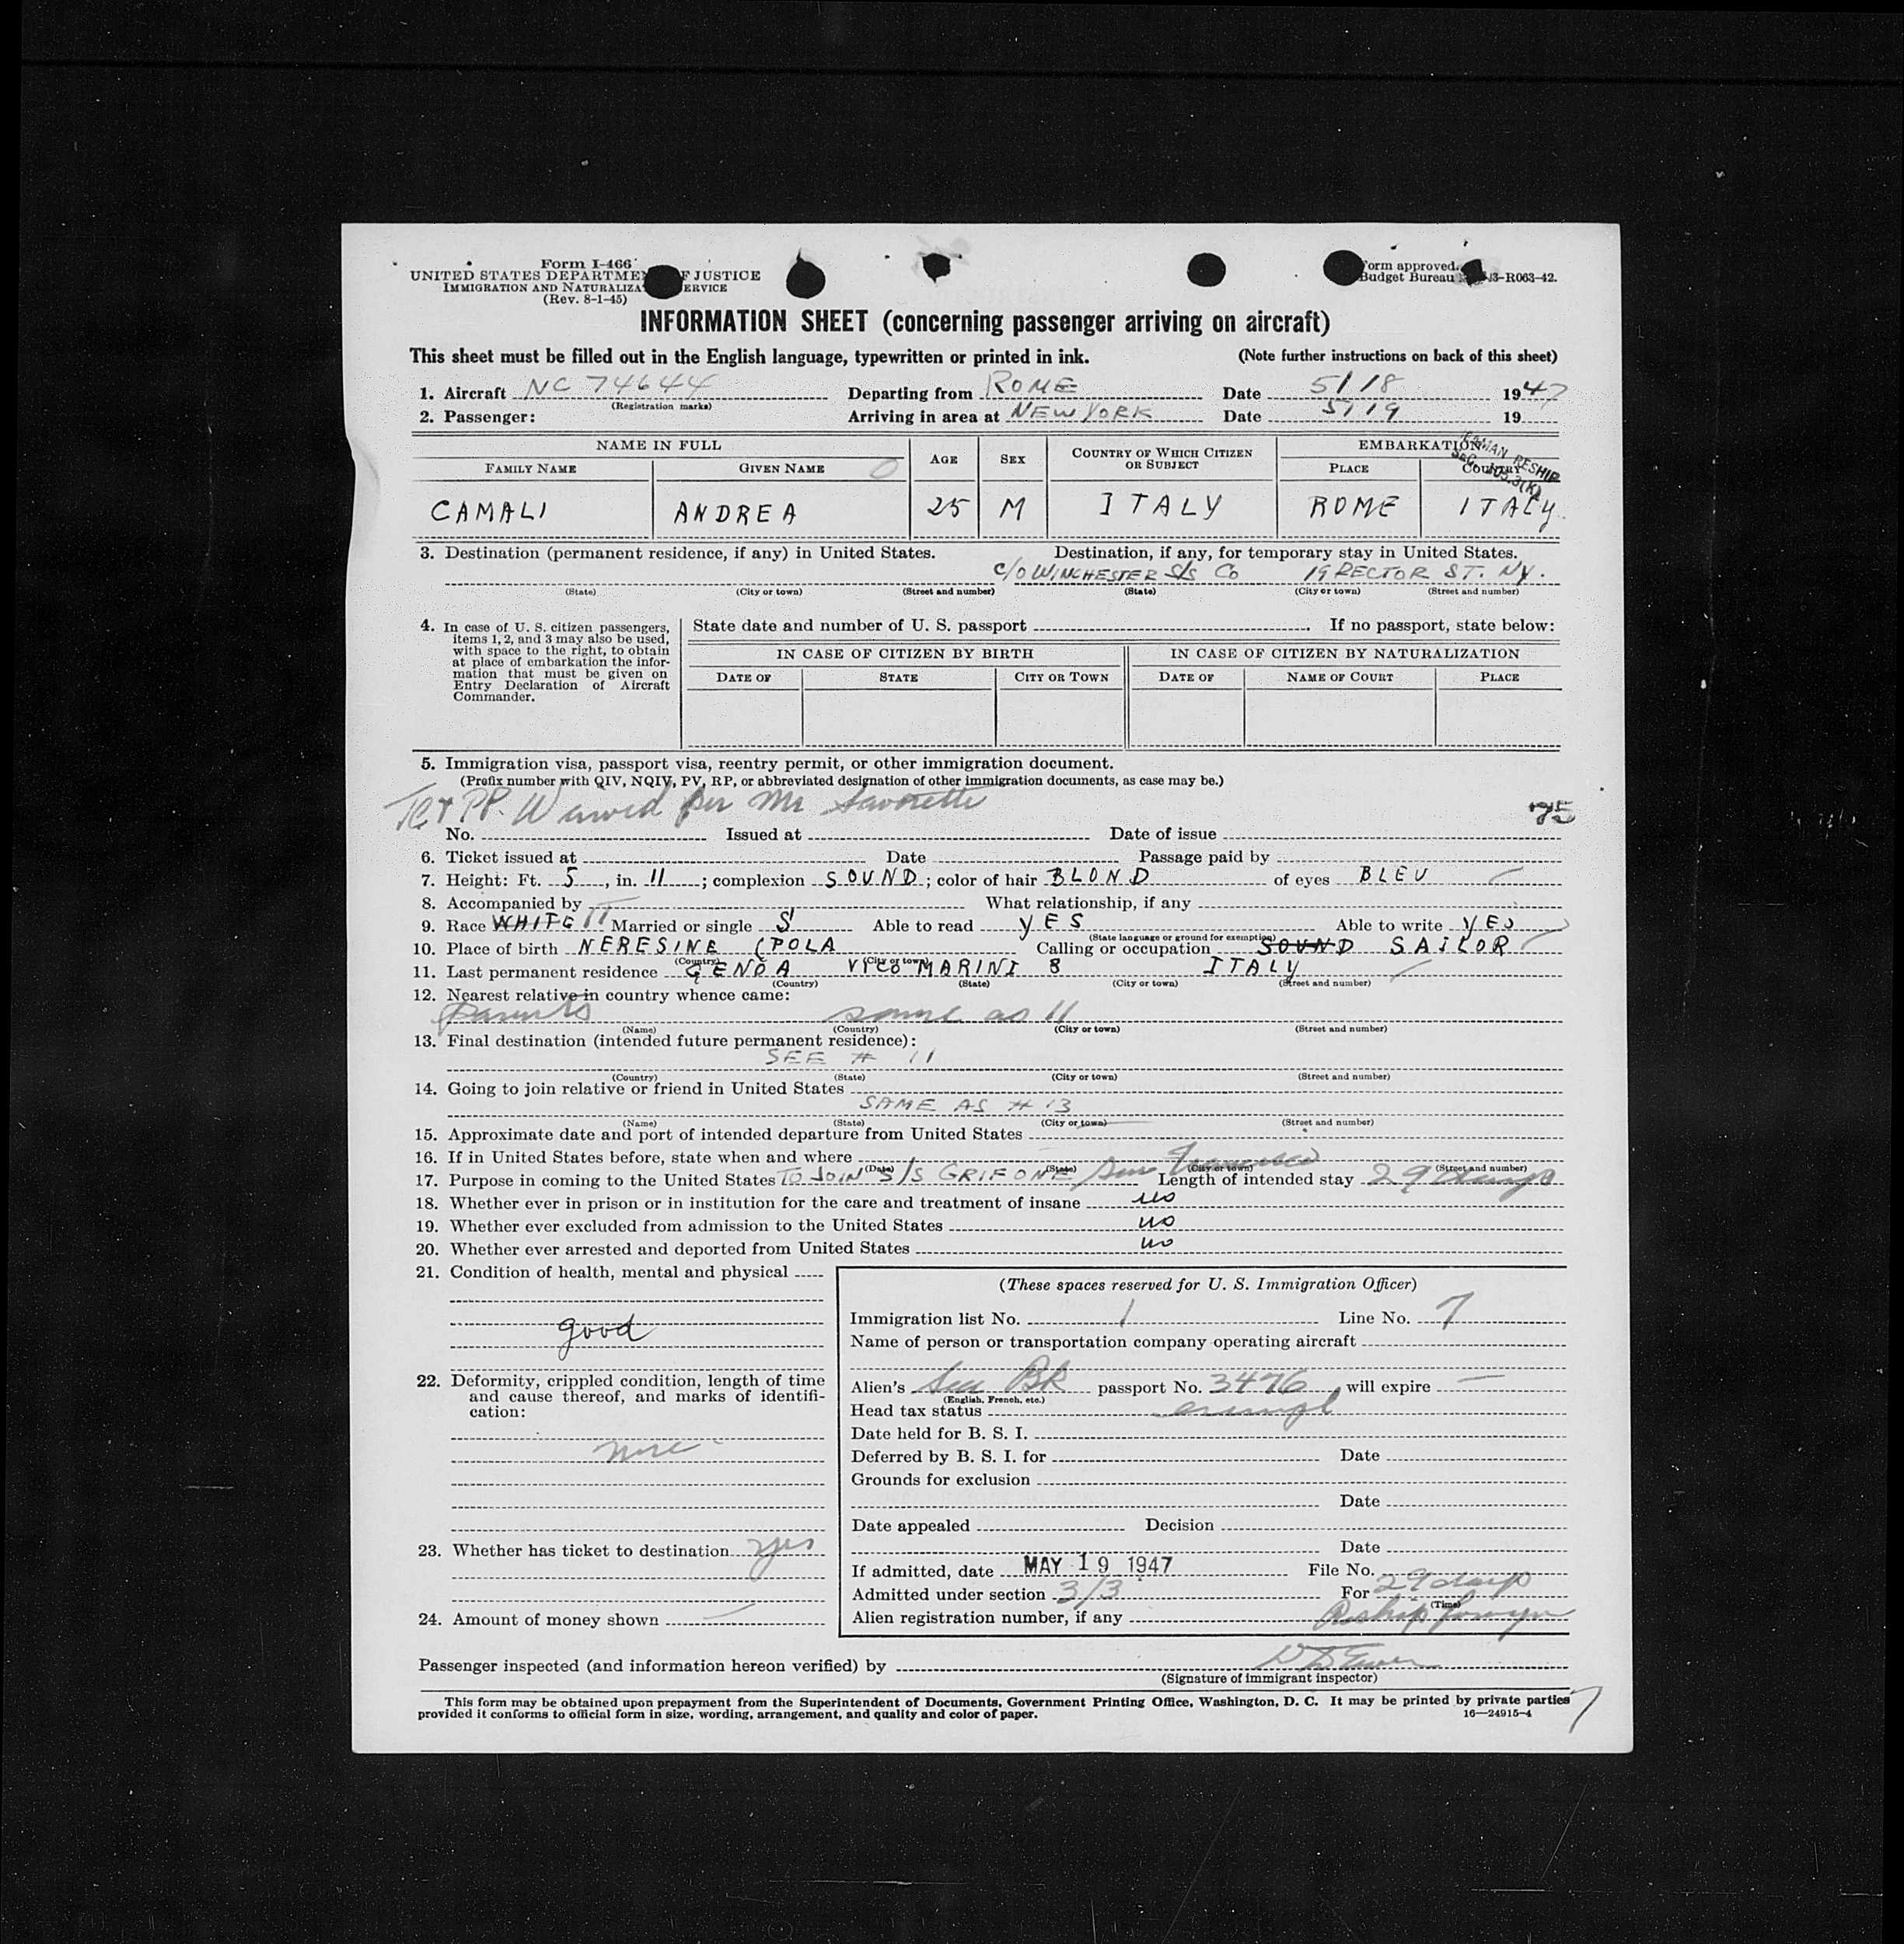 Form I-466
UNITED STATES DEPARTMENT OF JUSTICE
IMMIGRATION AND NATURALIZATION SERVICE
(Rev. 8-1-45)
Form approved.
Budget Bureau 43-R063-42.
INFORMATION SHEET (concerning passenger arriving on aircraft)
This sheet must be filled out in the English language, typewritten or printed in ink. (Note further instructions on back of this sheet)
1. Aircraft NC 74644 Departing from ROME Date 5/18 1947
(Registration marks)
2. Passenger: Arriving in area at NEW YORK Date 5/19 19
NAME IN FULL AGE SEX COUNTRY OF WHICH CITIZEN OR SUBJECT EMBARKATION
FAMILY NAME GIVEN NAME PLACE COUNTRY
RESHIP
CAMALI ANDREA 25 M ITALY ROME ITALY
3. Destination (permanent residence, if any) in United States. Destination, if any, for temporary stay in United States.
C/O WINCHESTER S/S Co 19 RECTOR ST. NY.
(State) (City or town) (Street and number) (State) (City or town) (Street and number)
4. In case of U. S. citizen passengers, items 1, 2, and 3 may also be used, with space to the right, to obtain at place of embarkation the information that must be given on Entry Declaration of Aircraft Commander.
State date and number of U. S. passport If no passport, state below:
IN CASE OF CITIZEN BY BIRTH IN CASE OF CITIZEN BY NATURALIZATION
DATE OF STATE CITY OR TOWN DATE OF NAME OF COURT PLACE
5. Immigration visa, passport visa, reentry permit, or other immigration document.
(Prefix number with QIV, NQIV, PV, RP, or abbreviated designation of other immigration documents, as case may be.)
PP. Waived per Mr Savorette
No. Issued at Date of issue
6. Ticket issued at Date Passage paid by
7. Height: Ft. 5, in. 11; complexion SOUND; color of hair BLOND of eyes BLEU
8. Accompanied by What relationship, if any
9. Race WHITE IT Married or single S Able to read YES Able to write YES
(State language or ground for exemption)
10. Place of birth NERESINE (POLA Calling or occupation SOUND SAILOR
(Country) (City or town)
11. Last permanent residence GENOA VICO MARINI 8 ITALY
(Country) (State) (City or town) (Street and number)
12. Nearest relative in country whence came:
Parents same as 11
(Name) (Country) (City or town) (Street and number)
13. Final destination (intended future permanent residence):
SEE # 11
(Country) (State) (City or town) (Street and number)
14. Going to join relative or friend in United States
SAME AS # 13
(Name) (State) (City or town) (Street and number)
15. Approximate date and port of intended departure from United States
16. If in United States before, state when and where
(Date) (State) (City or town) (Street and number)
17. Purpose in coming to the United States TO JOIN S/S GRIFONE San Francisco Length of intended stay 29 days
18. Whether ever in prison or in institution for the care and treatment of insane no
19. Whether ever excluded from admission to the United States no
20. Whether ever arrested and deported from United States no
21. Condition of health, mental and physical
good
22. Deformity, crippled condition, length of time and cause thereof, and marks of identification:
none
23. Whether has ticket to destination yes
24. Amount of money shown
(These spaces reserved for U. S. Immigration Officer)
Immigration list No. 1 Line No. 7
Name of person or transportation company operating aircraft
Alien's Sea Bk passport No. 3476, will expire
(English, French, etc.)
Head tax status exempt
Date held for B. S. I.
Deferred by B. S. I. for Date
Grounds for exclusion
Date
Date appealed Decision
Date
If admitted, date MAY 19 1947 File No.
Admitted under section 3/3 For 29 days
(Time)
Alien registration number, if any Reship foreign
Passenger inspected (and information hereon verified) by
(Signature of immigrant inspector)
This form may be obtained upon prepayment from the Superintendent of Documents, Government Printing Office, Washington, D. C. It may be printed by private parties
provided it conforms to official form in size, wording, arrangement, and quality and color of paper. 16—24915-4
7